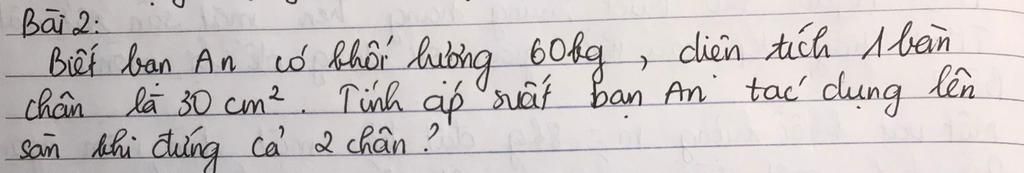 Bài 2:
Biết bạn An có khối lượng 60kg, diện tích 1 bàn
chân là 30 cm². Tính áp suất bạn An tác dụng lên
sàn khi đứng cả 2 chân?